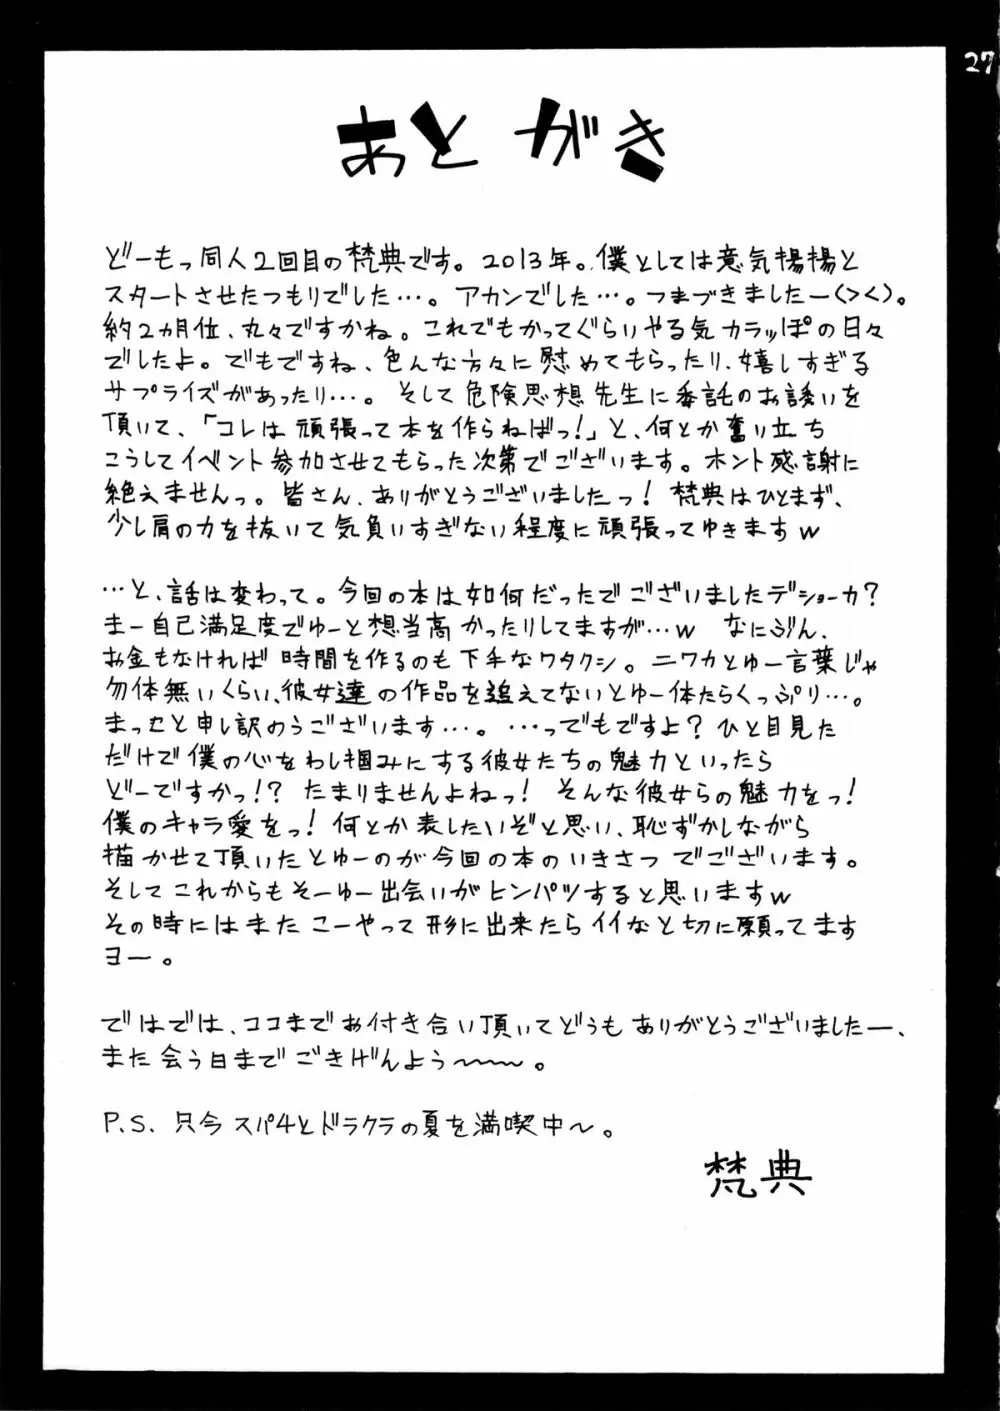 27
あとがき
どーもっ同人2回目の梵典です。2013年。僕としては意気揚揚と
スタートさせたつもりでした…。アカンでした…。つまづきましたー(>く)。
約2ヵ月位、丸々ですかね。これでもかってぐらいやる気カラッぽの日々
でしたよ。でもですね、色んな方々に慰めてもらったり、嬉しすぎる
サプライズがあったり…。そして危険思想先生に委託のお誘いを
頂いて、「コレは頑張って本を作らねばっ!」と、何とか奮い立ち
こうしてイベント参加させてもらった次第でございます。ホント感謝に
絶えませんっ。皆さん、ありがとうございましたっ!梵典はひとまず、
少し肩の力を抜いて気負いすぎない程度に頑張ってゆきますw
…と、話は変わって。今回の本は如何だったでございましたデショーカ?
まー自己満足度でゆーと想当高かったりしてますが…w なにぶん、
お金もなければ時間を作るのも下手なワタクシ。ニワカとゆー言葉じゃ
勿体無いくらい、彼女達の作品を追えてないとゆー体たらくっぷり…。
まっせと申し訳のうございます…。…ってもですよ?ひと目見た
だけで僕の心をわし掴みにする彼女たちの魅力といったら
どーですかっ!?たまりませんよねっ!そんな彼女らの魅力をっ!
僕のキャラ愛をっ!何とか表したいぞと思い、恥ずかしながら
描かせて頂いたとゆーのが今回の本のいきさつでございます。
そしてこれからもそーゆー出会いがヒンパツすると思いますw
その時にはまたこーやって形に出来たらイイなと切に願ってます
ヨー。
ではでは、ココまでお付き合い頂いてどうもありがとうございましたー、
また会う日までごきげんよう〜〜〜。
P.S. 只今スパ4とドラクラの夏を満喫中〜。
梵典